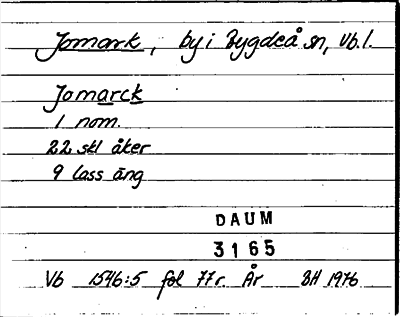 Jomark, by i Bygdeå sn, Vb.l.
Jomarck
1 nom.
22 skl åker
9 lass äng
DAUM
3165
Vb 1546:5 fol 77r. År BH 1976